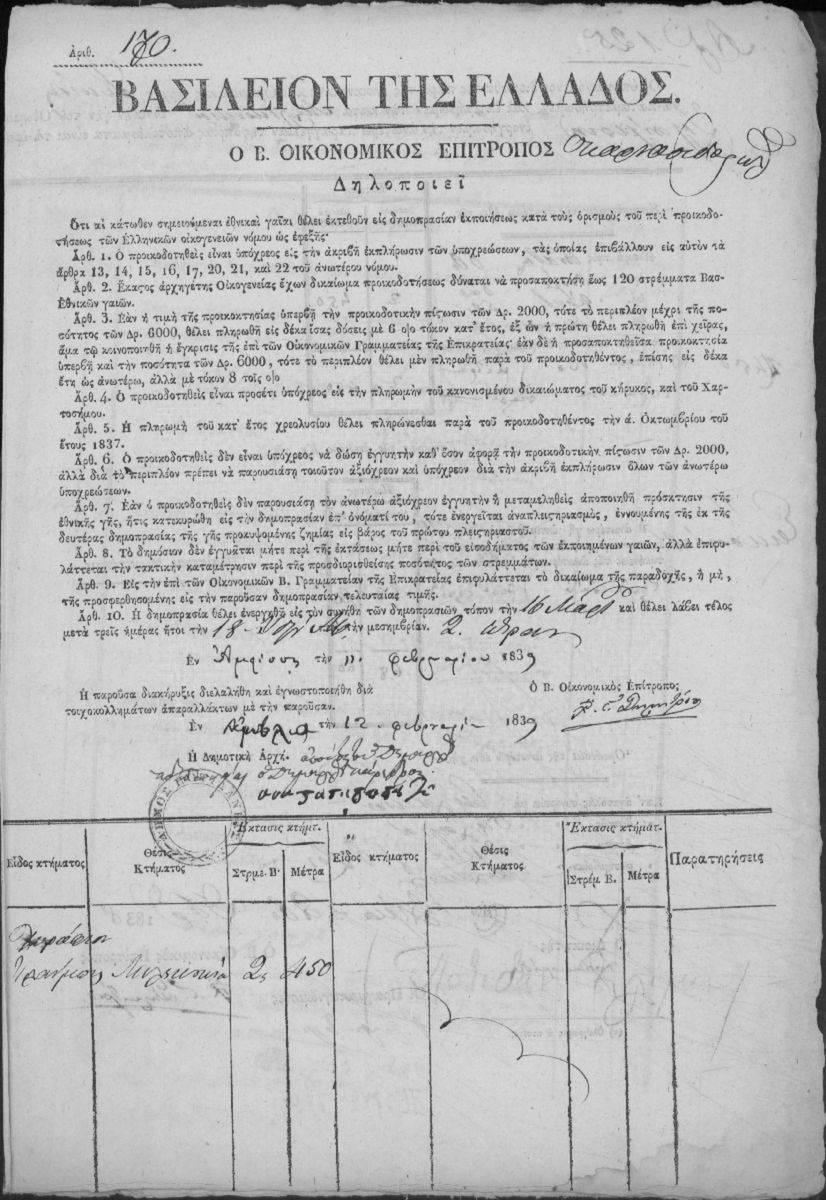 Ἀριθ. 170.
ΒΑΣΙΛΕΙΟΝ ΤΗΣ ΕΛΛΑΔΟΣ.
Ο Β. ΟΙΚΟΝΟΜΙΚΟΣ ΕΠΙΤΡΟΠΟΣ
Δηλοποιεῖ
Ὅτι αἱ κάτωθεν σημειούμεναι ἐθνικαὶ γαῖαι θέλει ἐκτεθοῦν εἰς δημοπρασίαν ἐκποιήσεως κατὰ τοὺς ὁρισμοὺς τοῦ περὶ προικοδο-
τήσεως τῶν Ἑλληνικῶν οἰκογενειῶν νόμου ὡς ἐφεξῆς·
Ἀρθ. 1. Ὁ προικοδοτηθεὶς εἶναι ὑπόχρεος εἰς τὴν ἀκριβῆ ἐκπλήρωσιν τῶν ὑποχρεώσεων, τὰς ὁποίας ἐπιβάλλουν εἰς αὐτὸν τὰ
ἄρθρα 13, 14, 15, 16, 17, 20, 21, καὶ 22 τοῦ ἀνωτέρω νόμου.
Ἀρθ. 2. Ἕκαστος ἀρχηγέτης Οἰκογενείας ἔχων δικαίωμα προικοδοτήσεως δύναται νὰ προσαποκτήσῃ ἕως 120 στρέμματα Βασ·
Ἐθνικῶν γαιῶν.
Ἀρθ. 3. Ἐὰν ἡ τιμὴ τῆς προικοκτησίας ὑπερβῇ τὴν προικοδοτικὴν πίστωσιν τῶν Δρ. 2000, τότε τὸ περιπλέον μέχρι τῆς πο-
σότητος τῶν Δρ. 6000, θέλει πληρωθῆ εἰς δέκα ἴσας δόσεις μὲ 6 ο)ο τόκον κατ' ἔτος, ἐξ ὧν ἡ πρώτη θέλει πληρωθῆ ἐπὶ χεῖρας,
ἅμα τῷ κοινοποιηθῇ ἡ ἔγκρισις τῆς ἐπὶ τῶν Οἰκονομικῶν Γραμματείας τῆς Ἐπικρατείας· ἐὰν δὲ ἡ προσαποκτηθεῖσα προικοκτησία
ὑπερβῇ καὶ τὴν ποσότητα τῶν Δρ. 6000, τότε τὸ περιπλέον θέλει μὲν πληρωθῆ παρὰ τοῦ προικοδοτηθέντος, ἐπίσης εἰς δέκα
ἔτη ὡς ἀνωτέρω, ἀλλὰ μὲ τόκον 8 τοῖς ο)ο
Ἀρθ. 4. Ὁ προικοδοτηθεὶς εἶναι προσέτι ὑπόχρεος εἰς τὴν πληρωμὴν τοῦ κανονισμένου δικαιώματος τοῦ κήρυκος, καὶ τοῦ Χαρ-
τοσήμου.
Ἀρθ. 5. Ἡ πληρωμὴ τοῦ κατ' ἔτος χρεολυσίου θέλει πληρώνεσθαι παρὰ τοῦ προικοδοτηθέντος τὴν ά. Ὀκτωμβρίου τοῦ
ἔτους 1837.
Ἀρθ. 6. Ὁ προικοδοτηθεὶς δὲν εἶναι ὑπόχρεος νὰ δώσῃ ἐγγυητὴν καθ' ὅσον ἀφορᾷ τὴν προικοδοτικὴν πίστωσιν τῶν Δρ. 2000,
ἀλλὰ διὰ τὸ περιπλέον πρέπει νὰ παρουσιάσῃ τοιοῦτον ἀξιόχρεον καὶ ὑπόχρεον διὰ τὴν ἀκριβῆ ἐκπλήρωσιν ὅλων τῶν ἀνωτέρω
ὑποχρεώσεων.
Ἀρθ. 7. Ἐὰν ὁ προικοδοτηθεὶς δὲν παρουσιάσῃ τὸν ἀνωτέρω ἀξιόχρεον ἐγγυητὴν ἢ μεταμεληθεὶς ἀποποιηθῇ πρόσκτησιν τῆς
ἐθνικῆς γῆς, ἥτις κατεκυρώθη εἰς τὴν δημοπρασίαν ἐπ' ὀνόματί του, τότε ἐνεργεῖται ἀναπλειστηριασμὸς, ἐννουμένης τῆς ἐκ τῆς
δευτέρας δημοπρασίας τῆς γῆς προκυψομένης ζημίας εἰς βάρος τοῦ πρώτου πλειστηριαστοῦ.
Ἀρθ. 8. Τὸ δημόσιον δὲν ἐγγυᾶται μήτε περὶ τῆς ἐκτάσεως μήτε περὶ τοῦ εἰσοδήματος τῶν ἐκποιημένων γαιῶν, ἀλλὰ ἐπιφυ-
λάττεται τὴν τακτικὴν καταμέτρησιν περὶ τῆς προσδιορισθείσης ποσότητος τῶν στρεμμάτων.
Ἀρθ. 9. Εἰς τὴν ἐπὶ τῶν Οἰκονομικῶν Β. Γραμματείαν τῆς Ἐπικρατείας ἐπιφυλάττεται τὸ δικαίωμα τῆς παραδοχῆς, ἢ μὴ,
τῆς προσφερθησομένης εἰς τὴν παροῦσαν δημοπρασίαν τελευταίας τιμῆς.
Ἀρθ. 10. Ἡ δημοπρασία θέλει ἐνεργηθῆ εἰς τὸν συνήθη τῶν δημοπρασιῶν τόπον τὴν 16 Μαρτ καὶ θέλει λάβει τέλος
μετὰ τρεῖς ἡμέρας ἤτοι τὴν 18 τὴν μεσημβρίαν. 2.
Ἐν τὴν 11 φεβρουαρίου 1839
Ἡ παροῦσα διακήρυξις διελαλήθη καὶ ἐγνωστοποιήθη διὰ
τοιχοκολλημάτων ἀπαραλλάκτων μὲ τὴν παροῦσαν.
Ὁ Β. Οἰκονομικὸς Ἐπίτροπος
Ἐν τὴν 12 φεβρουαρίου 1839
Ἡ Δημοτικὴ Ἀρχὴ.
ΔΗΜΟΣ
Εἶδος κτήματος
Θέσις Κτήματος
Ἔκτασις κτήματ.
Στρεμ. Β·
Μέτρα
Εἶδος κτήματος
Θέσις Κτήματος
Ἔκτασις κτήματ.
Στρέμ. Β.
Μέτρα
Παρατηρήσεις
2 450